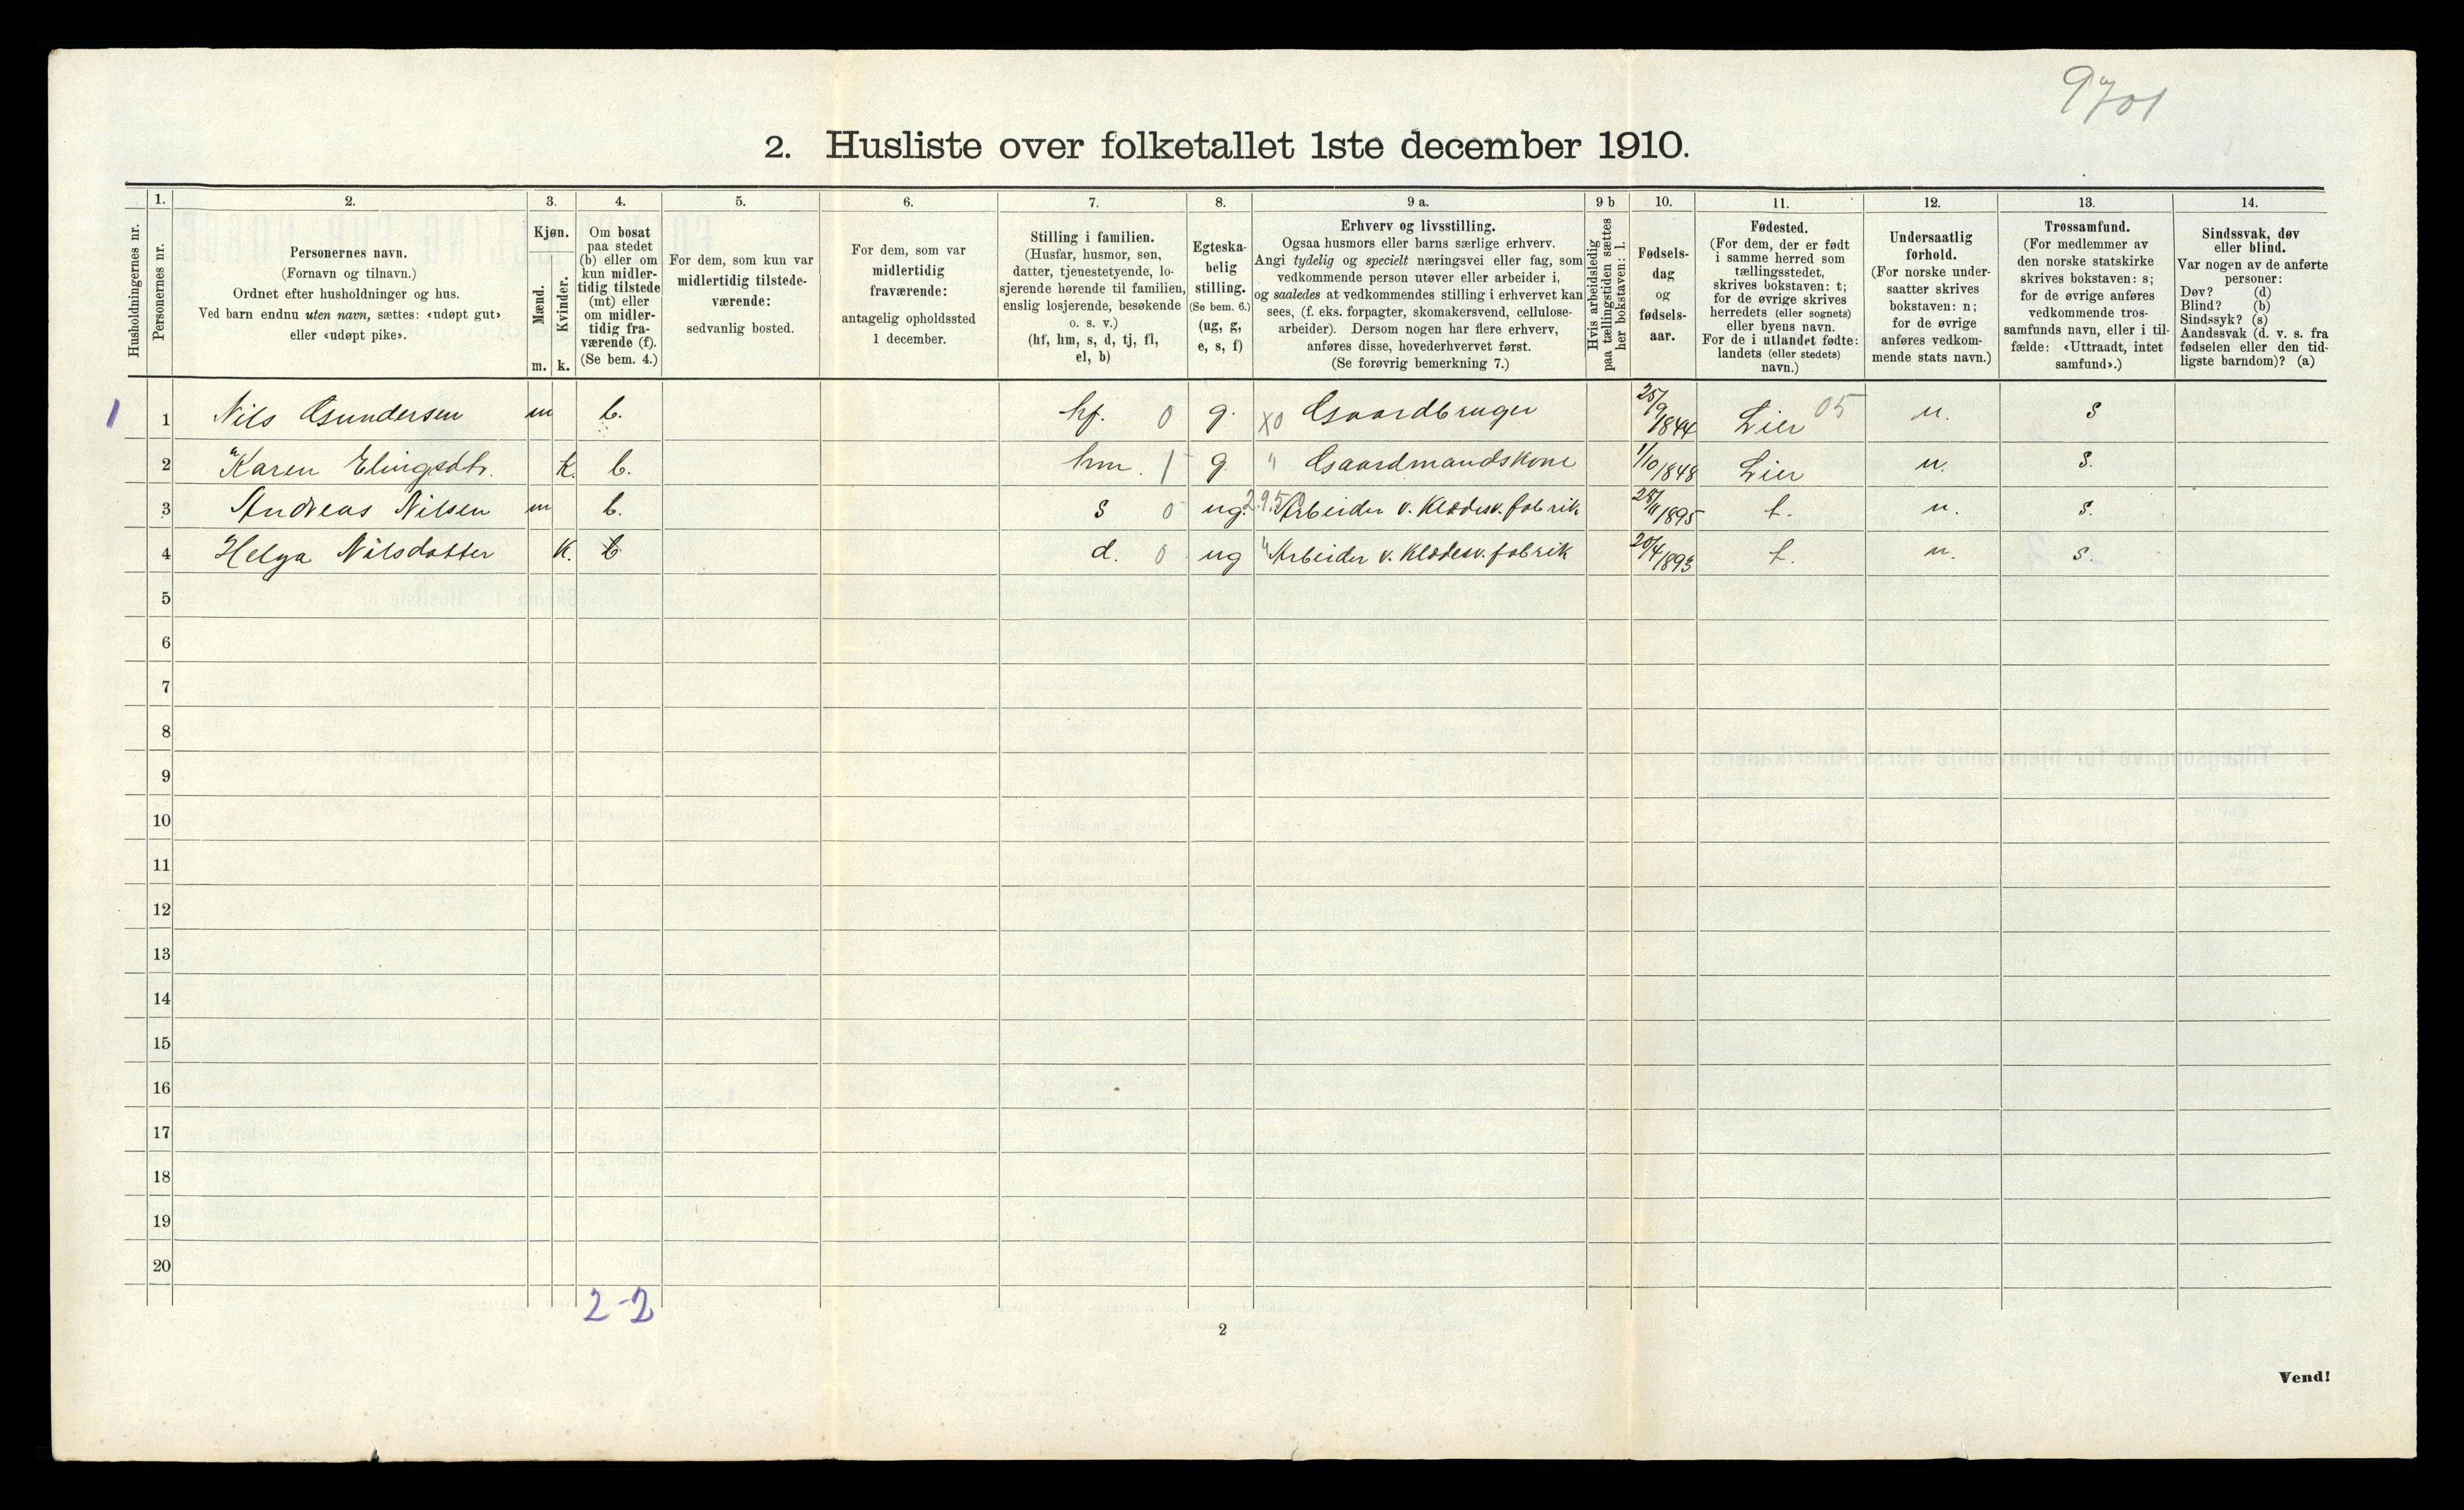 9701
2. Husliste over folketallet 1ste december 1910.
Husholdningernes nr.
1.
Personernes nr.
2.
Personernes navn.
(Fornavn og tilnavn.)
Ordnet efter husholdninger og hus.
Ved barn endnu uten navn, sættes: «udøpt gut»
eller «udøpt pike».
3.
Kjøn.
Mænd.
Kvinder.
m. k.
4.
Om bosat
paa stedet
(b) eller om
kun midler-
tidig tilstede
(mt) eller
om midler-
tidig fra-
værende (f).
(Se bem. 4.)
5.
For dem, som kun var
midlertidig tilstede-
værende:
sedvanlig bosted.
6.
For dem, som var
midlertidig
fraværende:
antagelig opholdssted
1 december.
7.
Stilling i familien.
(Husfar, husmor, søn,
datter, tjenestetyende, lo-
sjerende hørende til familien,
enslig losjerende, besøkende
o. s. v.)
(hf, hm, s, d, tj, fl,
el, b)
8.
Egteska-
belig
stilling.
(Se bem. 6.)
(ug, g,
e, s, f)
9 a.
Erhverv og livsstilling.
Ogsaa husmors eller barns særlige erhverv.
Angi tydelig og specielt næringsvei eller fag, som
vedkommende person utøver eller arbeider i,
og saaledes at vedkommendes stilling i erhvervet kan
sees, (f. eks. forpagter, skomakersvend, cellulose-
arbeider). Dersom nogen har flere erhverv,
anføres disse, hovederhvervet først.
(Se forøvrig bemerkning 7.)
9 b
Hvis arbeidsledig
paa tællingstiden sættes
her bokstaven: l.
10.
Fødsels-
dag
og
fødsels-
aar.
11.
Fødested.
(For dem, der er født
i samme herred som
tællingsstedet,
skrives bokstaven: t;
for de øvrige skrives
herredets (eller sognets)
eller byens navn.
For de i utlandet fødte:
landets (eller stedets)
navn.)
12.
Undersaatlig
forhold.
(For norske under-
saatter skrives
bokstaven: n;
for de øvrige
anføres vedkom-
mende stats navn.)
13.
Trossamfund.
(For medlemmer av
den norske statskirke
skrives bokstaven: s;
for de øvrige anføres
vedkommende tros-
samfunds navn, eller i til-
fælde: «Uttraadt, intet
samfund».)
14.
Sindssvak, døv
eller blind.
Var nogen av de anførte
personer:
Døv? (d)
Blind? (b)
Sindssyk? (s)
Aandssvak (d. v. s. fra
fødselen eller den tid-
ligste barndom)? (a)
1 1 Nils Gundersen m b. hf. 0 g. X0 Gaardbruger 25/9 1844 Lier 05 n. s
2 Karen Elingsdtr. k. b. hm. 1 g. " Gaardmandskone 1/10 1848 Lier n. s.
3 Andreas Nilsen m b. s 0 ug. 2.9.5 Arbeider v. Klædesv. fabrik 28/11 1895 t. n. s.
4 Helga Nilsdatter k. b d. 0 ug " Arbeider v. Klædesv. fabrik 20/4 1893 t. n. s.
5
6
7
8
9
10
11
12
13
14
15
16
17
18
19
20
2-2
2
Vend!